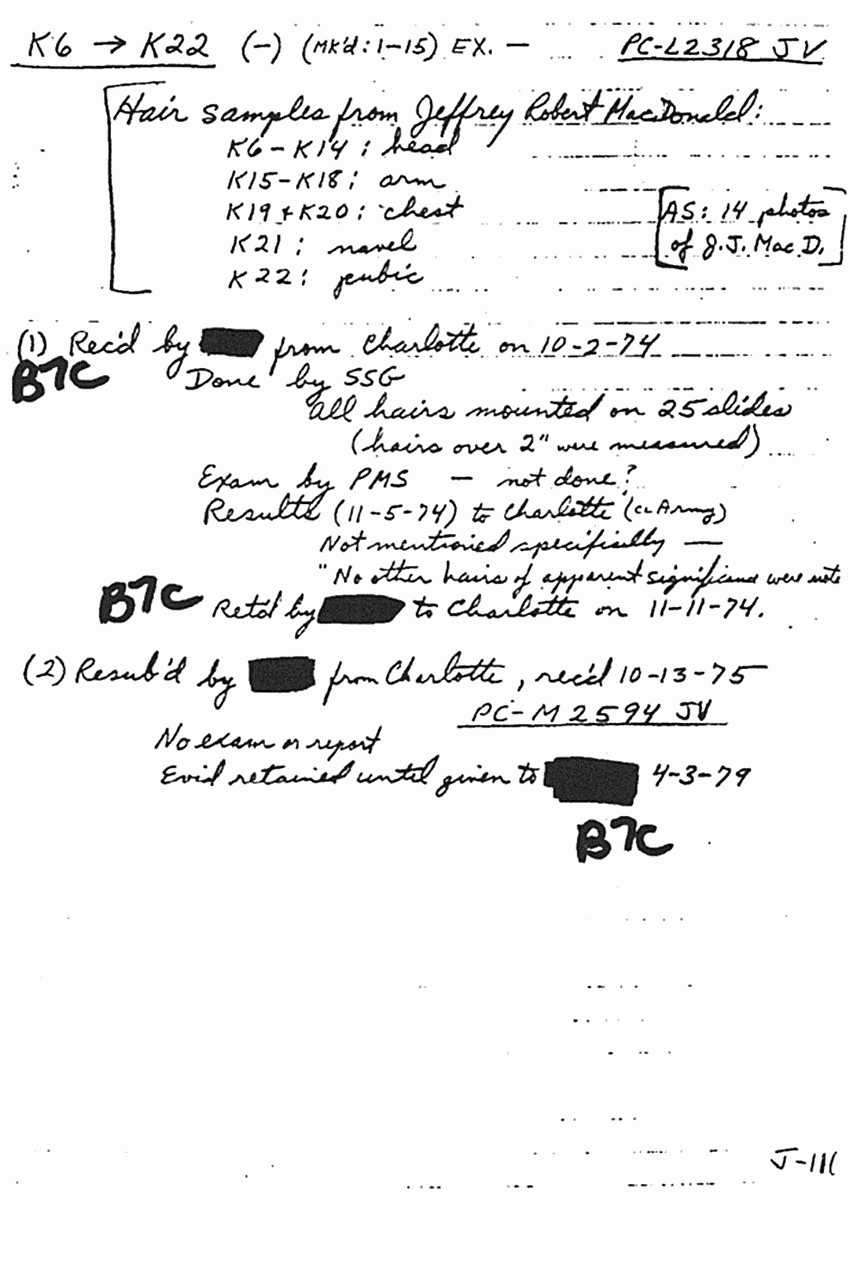 K6 → K22 (-) (MK'd: 1-15) EX. — PC-L2318 JV
Hair samples from Jeffrey Robert MacDonald:
K6-K14: head
K15-K18: arm
K19 + K20: chest
K21: navel
K22: pubic
[AS: 14 photos
of J.J. Mac D.]
(1) Rec'd by from Charlotte on 10-2-74
B7C
Done by SSG
all hairs mounted on 25 slides
(hairs over 2" were measured)
Exam by PMS — not done?
Results (11-5-74) to Charlotte (cc Army)
Not mentioned specifically —
"No other hairs of apparent significance were note
B7C Ret'd by to Charlotte on 11-11-74.
(2) Resub'd by from Charlotte, rec'd 10-13-75
PC-M2594 JV
No exam or report
Evid retained until given to 4-3-79
B7C
J-111